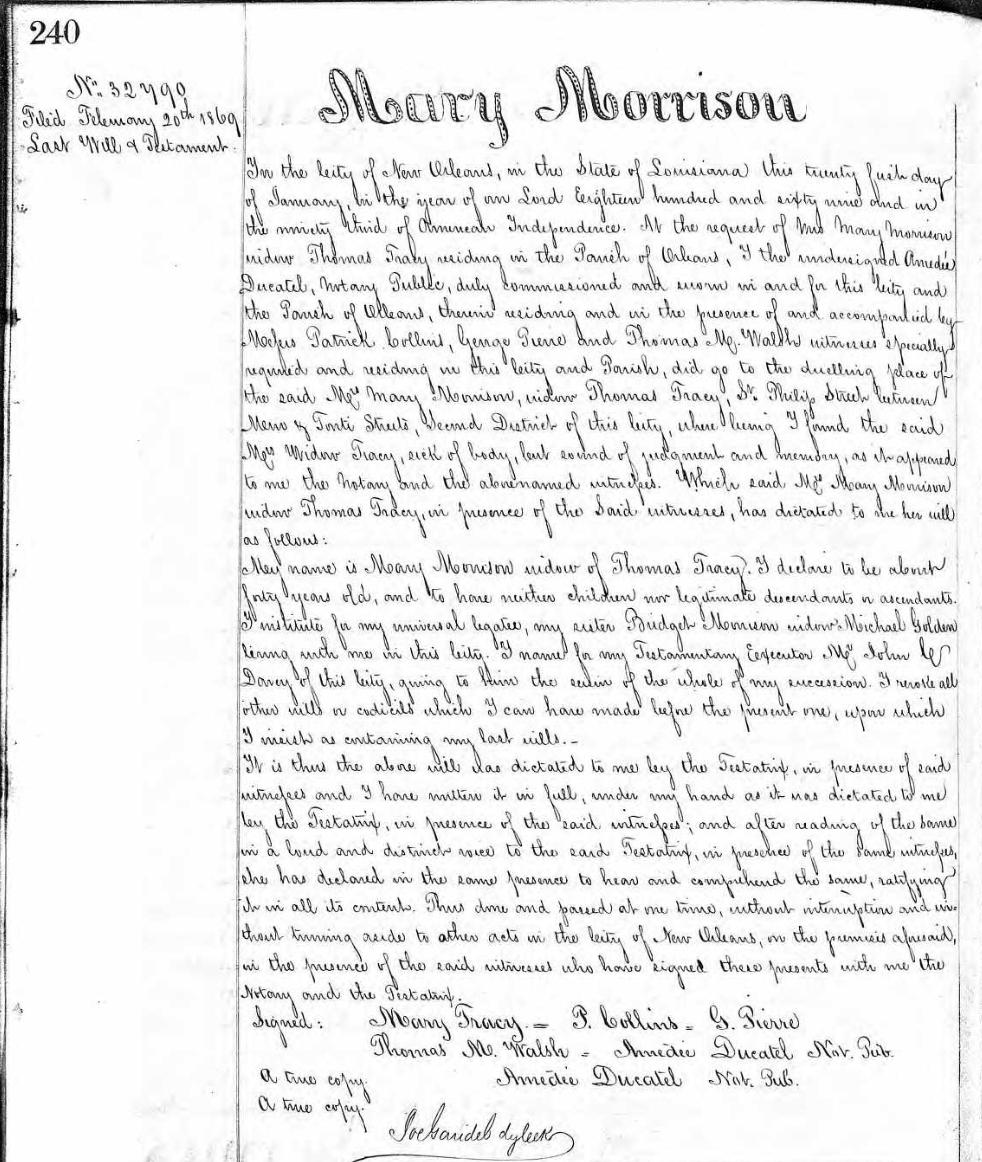 240
No. 32790
Filed February 20th 1869
Last Will & Testament
Mary Morrison
In the City of New Orleans, in the State of Louisiana this twenty first day
of January, in the year of our Lord Eighteen hundred and sixty nine and in
the ninety third of American Independence. At the request of Mrs Mary Morrison
widow Thomas Tracy residing in the Parish of Orleans, I the undersigned Amedée
Ducatel, Notary Public, duly commissioned and sworn in and for this City and
the Parish of Orleans, therein residing and in the presence of and accompanied by
Messrs Patrick Collins, George Pierre and Thomas M. Walsh witnesses specially
required and residing in this City and Parish, did go to the dwelling place of
the said Mrs Mary Morrison, widow Thomas Tracy, St. Philip Street between
Miro & Tonti Streets, Second District of this City, where being I found the said
Mrs Widow Tracy, sick of body, but sound of judgment and memory, as it appeared
to me the Notary and the abovenamed witnesses. Which said Mrs Mary Morrison
widow Thomas Tracy, in presence of the Said witnesses, has dictated to me her will
as follows:
My name is Mary Morrison widow of Thomas Tracy. I declare to be about
forty years old, and to have neither children nor legitimate descendants or ascendants.
I institute for my universal legatee, my sister Bridget Morrison widow Michael Golden
living with me in this City. I name for my Testamentary Executor Mr John
Darcy of this City, giving to him the seizin of the whole of my succession. I revoke all
other wills or codicils which I can have made before the present one, upon which
I insist as containing my last wills.-
It is thus the above will was dictated to me by the Testatrix, in presence of said
witnesses and I have written it in full, under my hand as it was dictated to me
by the Testatrix, in presence of the said witnesses; and after reading of the same
in a loud and distinct voice to the said Testatrix, in presence of the same witnesses,
she has declared in the same presence to hear and comprehend the same, ratifying
it in all its content. Thus done and passed at one time, without interruption and wi-
thout turning aside to other acts in the City of New Orleans, on the premises aforesaid,
in the presence of the said witnesses who have signed these presents with me the
Notary and the Testatrix.
Signed: Mary Tracy = P. Collins = G. Pierre
Thomas M. Walsh = Amedée Ducatel Not. Pub.
A true copy. Amedée Ducatel Not. Pub.
A true copy.
dy clerk